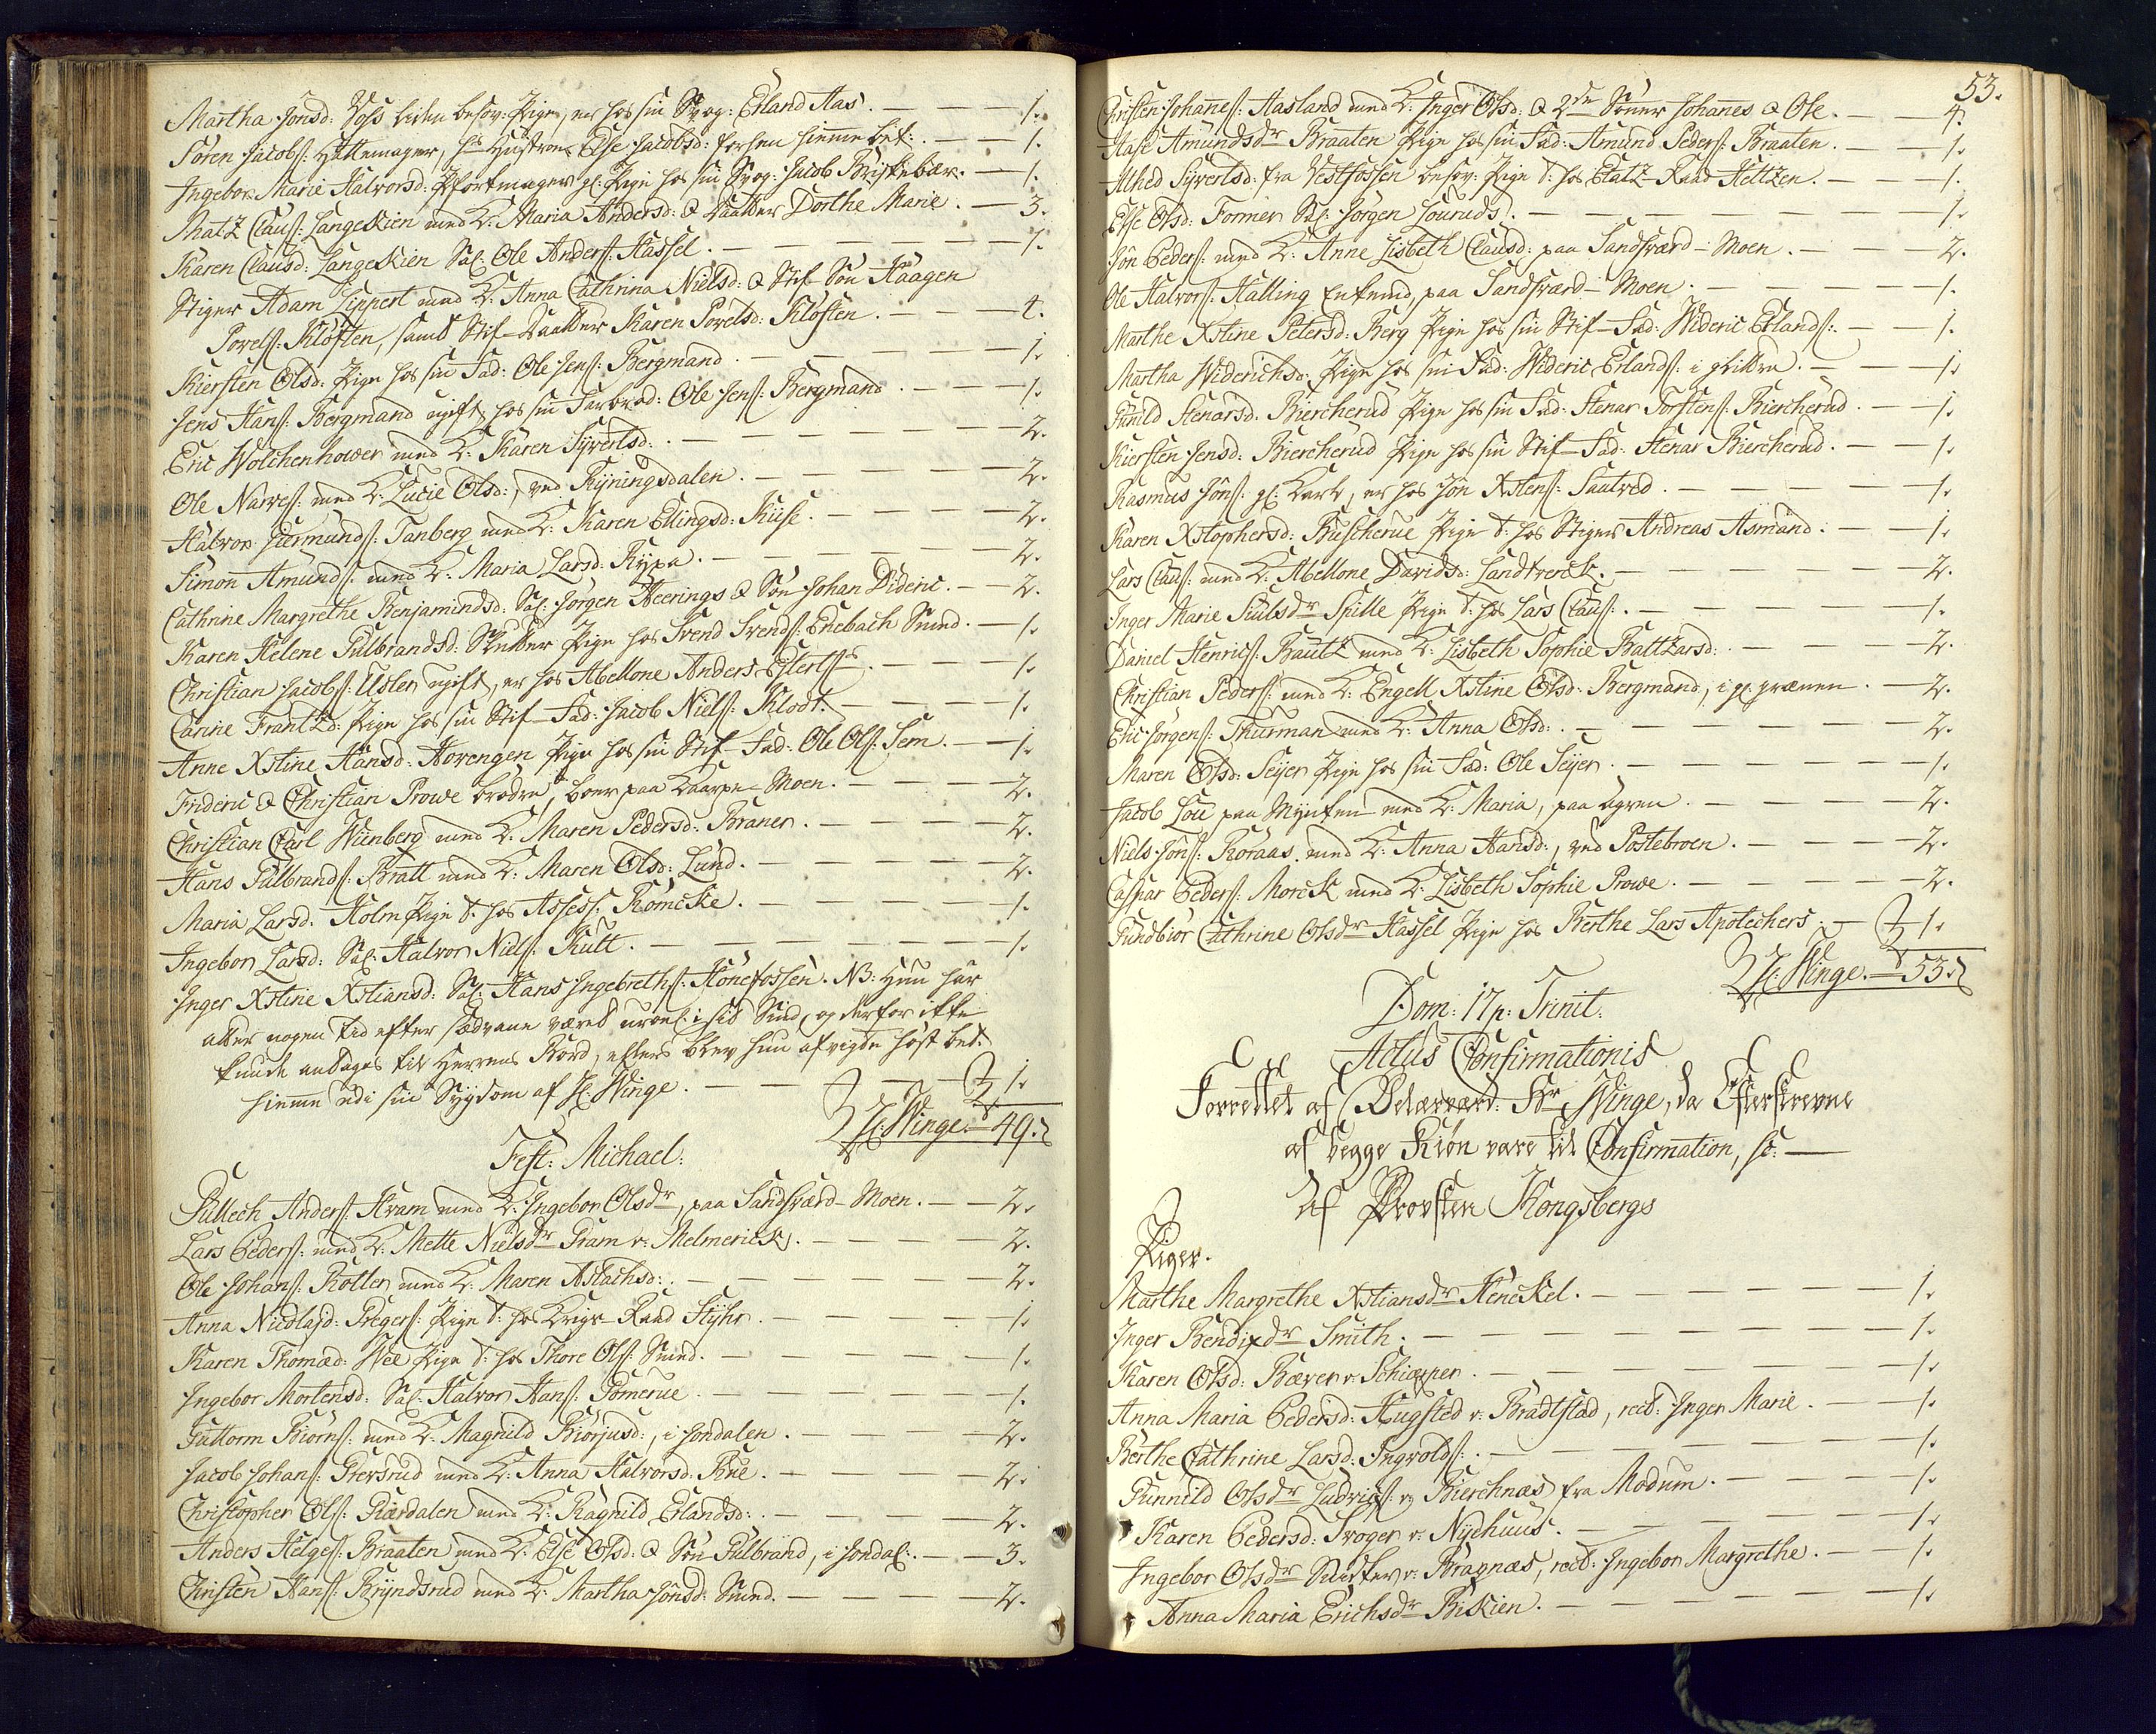 Martha Jonsd: Voss liden besov: Pige, er hos sin Svog: Erland Aas. — 1.
Sören Jacobs: Hattemager, hs Hustroe Else Jacobsd: forhen hiemme bet: — 1.
Ingebor Marie Halvorsd: Pige hos sin Svog: Jacob Briskebær. — 1.
Matz Claus: Langeskien med K: Maria Andersd: & Daatter Dorthe Marie. — 3.
Karen Clausd: Langeskien Sal: Ole Anders: Hassel. — 1.
Stiger Adam Lippert med K: Anna Cathrina Nielsd: & Stif-Søn Haagen
Povels: Klöften, samt Stif-Daatter Karen Povelsd: Klöften. — 4.
Kiersten Olsd: Pige hos sin Fad: Ole Jens: Bergmand. — 1.
Jens Hans: Bergmand ugift, hos sin Farbrod: Ole Jens: Bergmand. — 1.
Eric Wolchenhower med K: Karen Syvertsd: — 2.
Ole Narves: med K: Lucie Olsd:, ved Ryningsdalen. — 2.
Halvor Giermunds: Tanberg med K: Karen Ellingsd: Kiise. — 2.
Simon Amunds: med K: Maria Larsd: Rypa. — 2.
Cathrine Margrethe Benjamindsd: Sal: Jörgen Meerings & Søn Johan Dideric. — 2.
Karen Helene Gulbrandsd: Skutter Pige hos Svend Svends: Enebach Smed. — 1.
Christian Jacobs: Usler ugift, er hos Abellone Anders Eilerts — 1.
Carine Frantzd: Pige hos sin Stif-Fad: Jacob Niels: Klodt. — 1.
Anne Xstine Hansd: Hovengen Pige hos sin Stif-Fad: Ole Ols: Sem. — 1.
Frideric & Christian Prowe brødre, boer paa Kaarpe-Moen. — 2.
Christian Carl Wiinberg med K: Maren Pedersd: Braner. — 2.
Hans Gulbrands: Bratt med K: Maren Olsd: Lund. — 2.
Maria Larsd. Holm Pige t: hos Assess: Römcke. — 1.
Ingebor Larsd: Sal: Halvor Niels: Kult. — 1.
Inger Xstine Xstiansd: Sal: Hans Ingebreths: Hönefossen. NB: Hun har
atter nogen tid efter sædvane været uroel: i sit Sind, og derfor ikke
kunde antages til Herrens Bord, ellers blev hun afvigte høst bet:
hiemme udi sin Sygdom af H: Winge. — 1.
H: Winge. — 49.
Fest: Michael:
Gullech Anders: Hvam med K: Ingebor Olsdr, paa Sandsværd-Moen. — 2.
Lars Peders: med K: Mette Nielsdr Gram v: Melmerick. — 2.
Ole Johans: Rotter med K: Maren Aslachsd: — 2.
Anna Niclasd: Gregers: Pige t: hos Krigs-Raad Styhr. — 1.
Karen Thomæd: Wee Pige t: hos Thore Ols: Smed. — 1.
Ingebor Mortensd: Sal: Halvor Hans: Gomerue. — 1.
Guttorm Biörns: med K: Magnild Biörjusd:, i Jondalen. — 2.
Jacob Johans: Greverud med K: Anna Halvorsd: Rue. — 2.
Christopher Ols: Kiærdalen med K: Ragnild Elandsd: — 2.
Anders Helges: Braaten med K: Else Olsd: & Søn Gulbrand, i Jondal: — 3.
Christen Hans: Bryndsrud med K: Martha Jonsd: Smed. — 2.
53.
Christen Johannes: Aasland med K: Inger Olsd: & 2de Sønner Johanes & Ole. — 4.
Aase Amundsdr Braaten Pige hos sin Fad: Amund Peders: Braaten. — 1.
Alhed Syvertsd: fra Vestfossen besov: Pige t: hos Etatz-Raad Heltzen. — 1.
Else Olsd: Former Sal: Jörgen Joruds. — 1.
Jön Peders: med K: Anne Lisbeth Clausd: paa Sandsværd-Moen. — 2.
Ole Halvors: Halling Enkemd, paa Sandsværd-Moen. — 1.
Marthe Xstine Petersd: Berg Pige hos sin Stif-Fad: Wideric Erlands: — 1.
Martha Widerichsd: Pige hos sin Fad: Wideric Erlands: i glittre. — 1.
Gunild Stenarsd: Biercherud Pige hos sin Fad: Stenar Torstens: Biercherud. — 1.
Kiersten Jensd: Biercherud Pige hos sin Stif-Fad: Stenar Biercherud. — 1.
Rasmus Jöns: gl: Karl, er hos Jön Xstens: Saatved. — 1.
Karen Xstophersd: Kuscherue Pige t: hos Stiger Andreas Asmand. — 1.
Lars Claus: med K: Abellone Davidsd: Landtverck. — 2.
Inger Marie Siulsdr Spille Pige t: hos Lars Claus: — 1.
Daniel Henrics: Bautz med K: Lisbeth Sophie Baltzarsd: — 2.
Christian Peders: med K: Engell Xstine Olsd: Bergmand, i gl: grænen. — 2.
Eric Jörgens: Thurman med K: Anna Olsd: — 2.
Maren Olsd: Seyer Pige hos sin Fad: Ole Seyer. — 1.
Jacob Loe paa Mynten med K: Maria, paa Agren. — 2.
Niels Jöns: Roraas med K: Anna Hansd:, ved Postebroen. — 2.
Caspar Peders: Morck med K: Lisbeth Sophie Prowe. — 2.
Gundbiör Cathrine Olsdr Hassel Pige hos Berthe Lars Apotechers. — 1.
H: Winge. — 53.
Dom: 17 p: Trinit:
Actus Confirmationis
Forrettet af Velærværd: Hr Winge, da Efterskrevne
af begge Kiøn vare til Confirmation, sc: —
Af Provsten Kongsbergs
Piger.
Marthe Margrethe Xstiansdr Henckel. — 1.
Inger Bendixdr Smith. — 1.
Karen Olsd: Bæver v: Schiæper. — 1.
Anna Maria Pedersd: Hugsted v: Bradtstad, rect: Inger Marie. — 1.
Berthe Cathrine Larsd: Ingvolds: — 1.
Gunnild Olsdr Ludvigs: v: Bierchnæs fra Modum. — 1.
Karen Pedersd: Svoger v: Nyehuus. — 1.
Ingebor Olsdr v: Bragnæs, rect: Ingebor Margrethe. — 1.
Anna Maria Erichsdr Biskien. — 1.